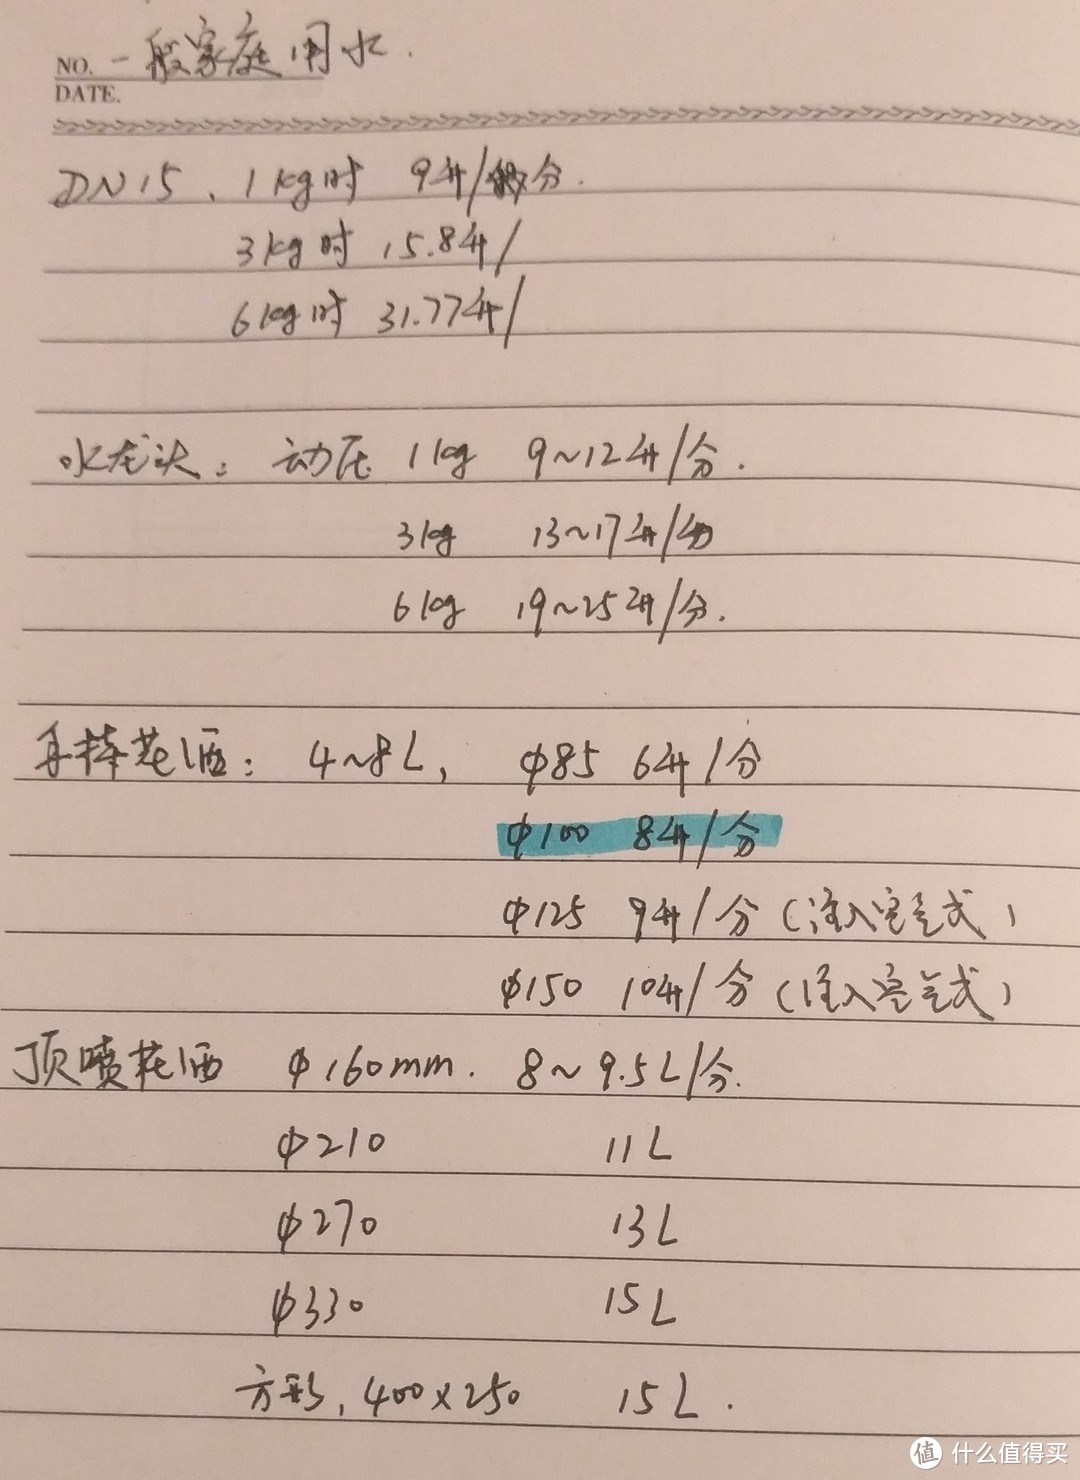 NO. 一般家庭用水.
DATE.
DN15、1kg时 9升/分.
3kg时 15.8升/
6kg时 31.77升/
水龙头: 动压 1kg 9~12升/分.
3kg 13~17升/分
6kg 19~25升/分.
手持花洒: 4~8L, φ85 6升/分
φ100 8升/分
φ125 9升/分(注入空气式)
φ150 10升/分(注入空气式)
顶喷花洒 φ160mm. 8~9.5L/分.
φ210 11L
φ270 13L
φ330 15L
方形, 400×250 15L.
值 什么值得买